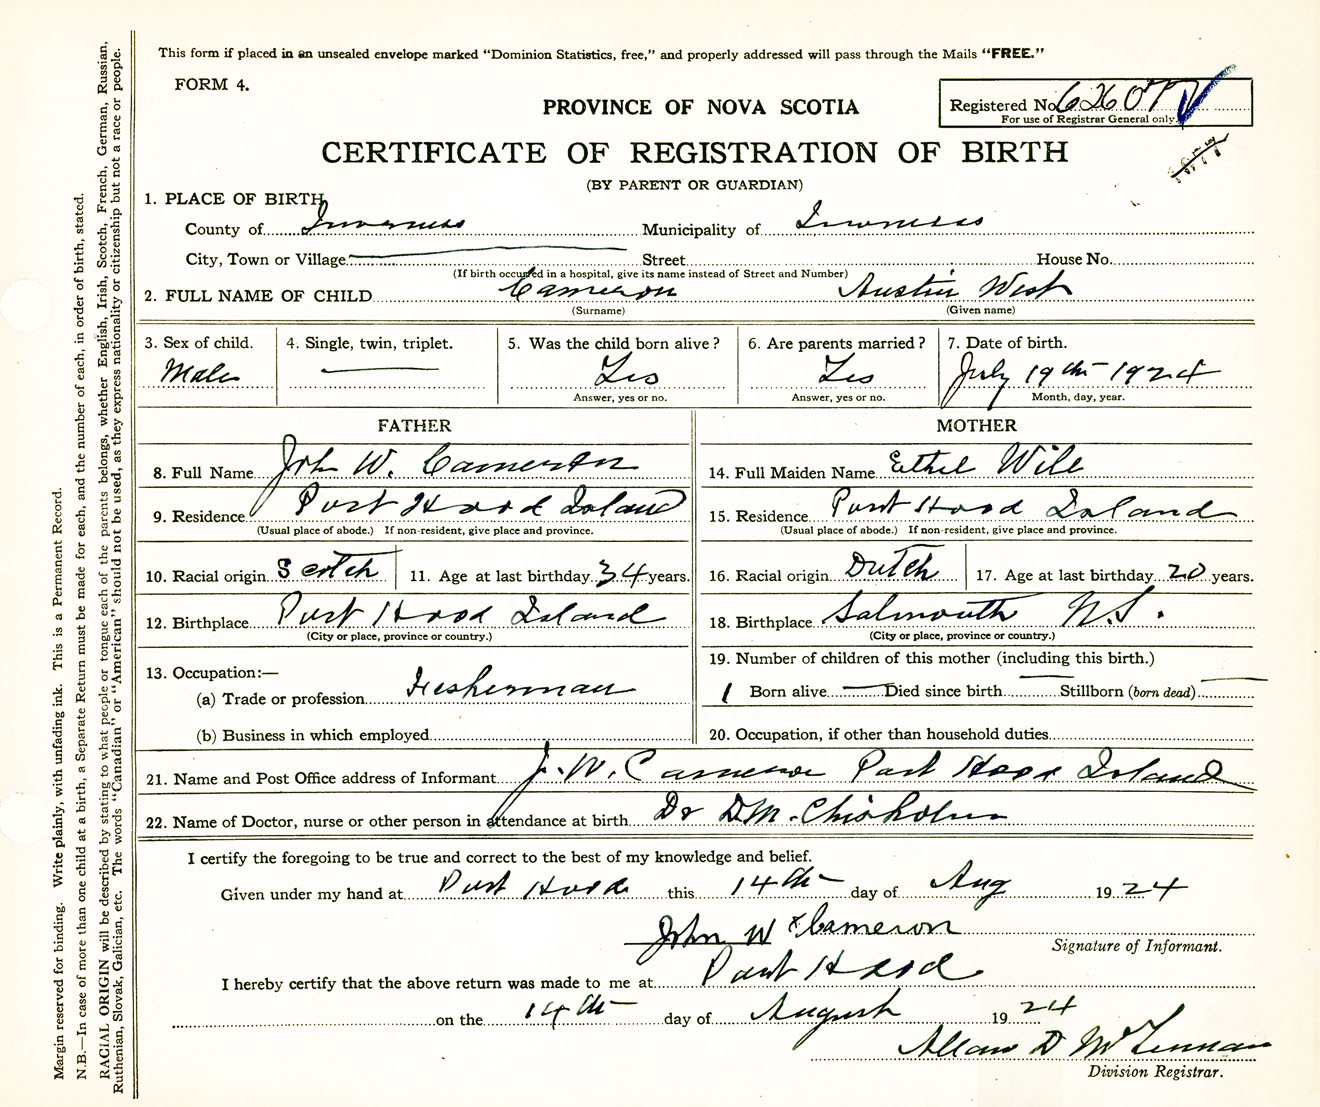 This form if placed in an unsealed envelope marked “Dominion Statistics, free,” and properly addressed will pass through the Mails “FREE.”
FORM 4.
Registered No. 6260
For use of Registrar General only.
PROVINCE OF NOVA SCOTIA
CERTIFICATE OF REGISTRATION OF BIRTH
(BY PARENT OR GUARDIAN)
1. PLACE OF BIRTH
County of Inverness Municipality of Inverness
City, Town or Village Street House No.
(If birth occurred in a hospital, give its name instead of Street and Number)
2. FULL NAME OF CHILD Cameron Austin West
(Surname) (Given name)
3. Sex of child. 4. Single, twin, triplet. 5. Was the child born alive? 6. Are parents married? 7. Date of birth.
Male Yes Yes July 19th 1924
Answer, yes or no. Answer, yes or no. Month, day, year.
FATHER
8. Full Name John W. Cameron
9. Residence Port Hood Island
(Usual place of abode.) If non-resident, give place and province.
10. Racial origin Scotch 11. Age at last birthday 34 years.
12. Birthplace Port Hood Island
(City or place, province or country.)
13. Occupation:—
(a) Trade or profession Fisherman
(b) Business in which employed
MOTHER
14. Full Maiden Name Ethel Wile
15. Residence Port Hood Island
(Usual place of abode.) If non-resident, give place and province.
16. Racial origin Dutch 17. Age at last birthday 20 years.
18. Birthplace N.S.
(City or place, province or country.)
19. Number of children of this mother (including this birth.)
1 Born alive Died since birth Stillborn (born dead)
20. Occupation, if other than household duties
21. Name and Post Office address of Informant J. W. Cameron Port Hood Island
22. Name of Doctor, nurse or other person in attendance at birth Dr D.M. Chisholm
I certify the foregoing to be true and correct to the best of my knowledge and belief.
Given under my hand at Port Hood this 14th day of Aug 1924
John W Cameron
Signature of Informant.
I hereby certify that the above return was made to me at Port Hood
on the 14th day of August 1924
Allan D McLennan
Division Registrar.
Margin reserved for binding. Write plainly, with unfading ink. This is a Permanent Record.
N.B.—In case of more than one child at a birth, a Separate Return must be made for each, and the number of each, in order of birth, stated.
RACIAL ORIGIN will be described by stating to what people or tongue each of the parents belongs, whether English, Irish, Scotch, French, German, Russian,
Ruthenian, Slovak, Galician, etc. The words “Canadian” or “American” should not be used, as they express nationality or citizenship but not a race or people.